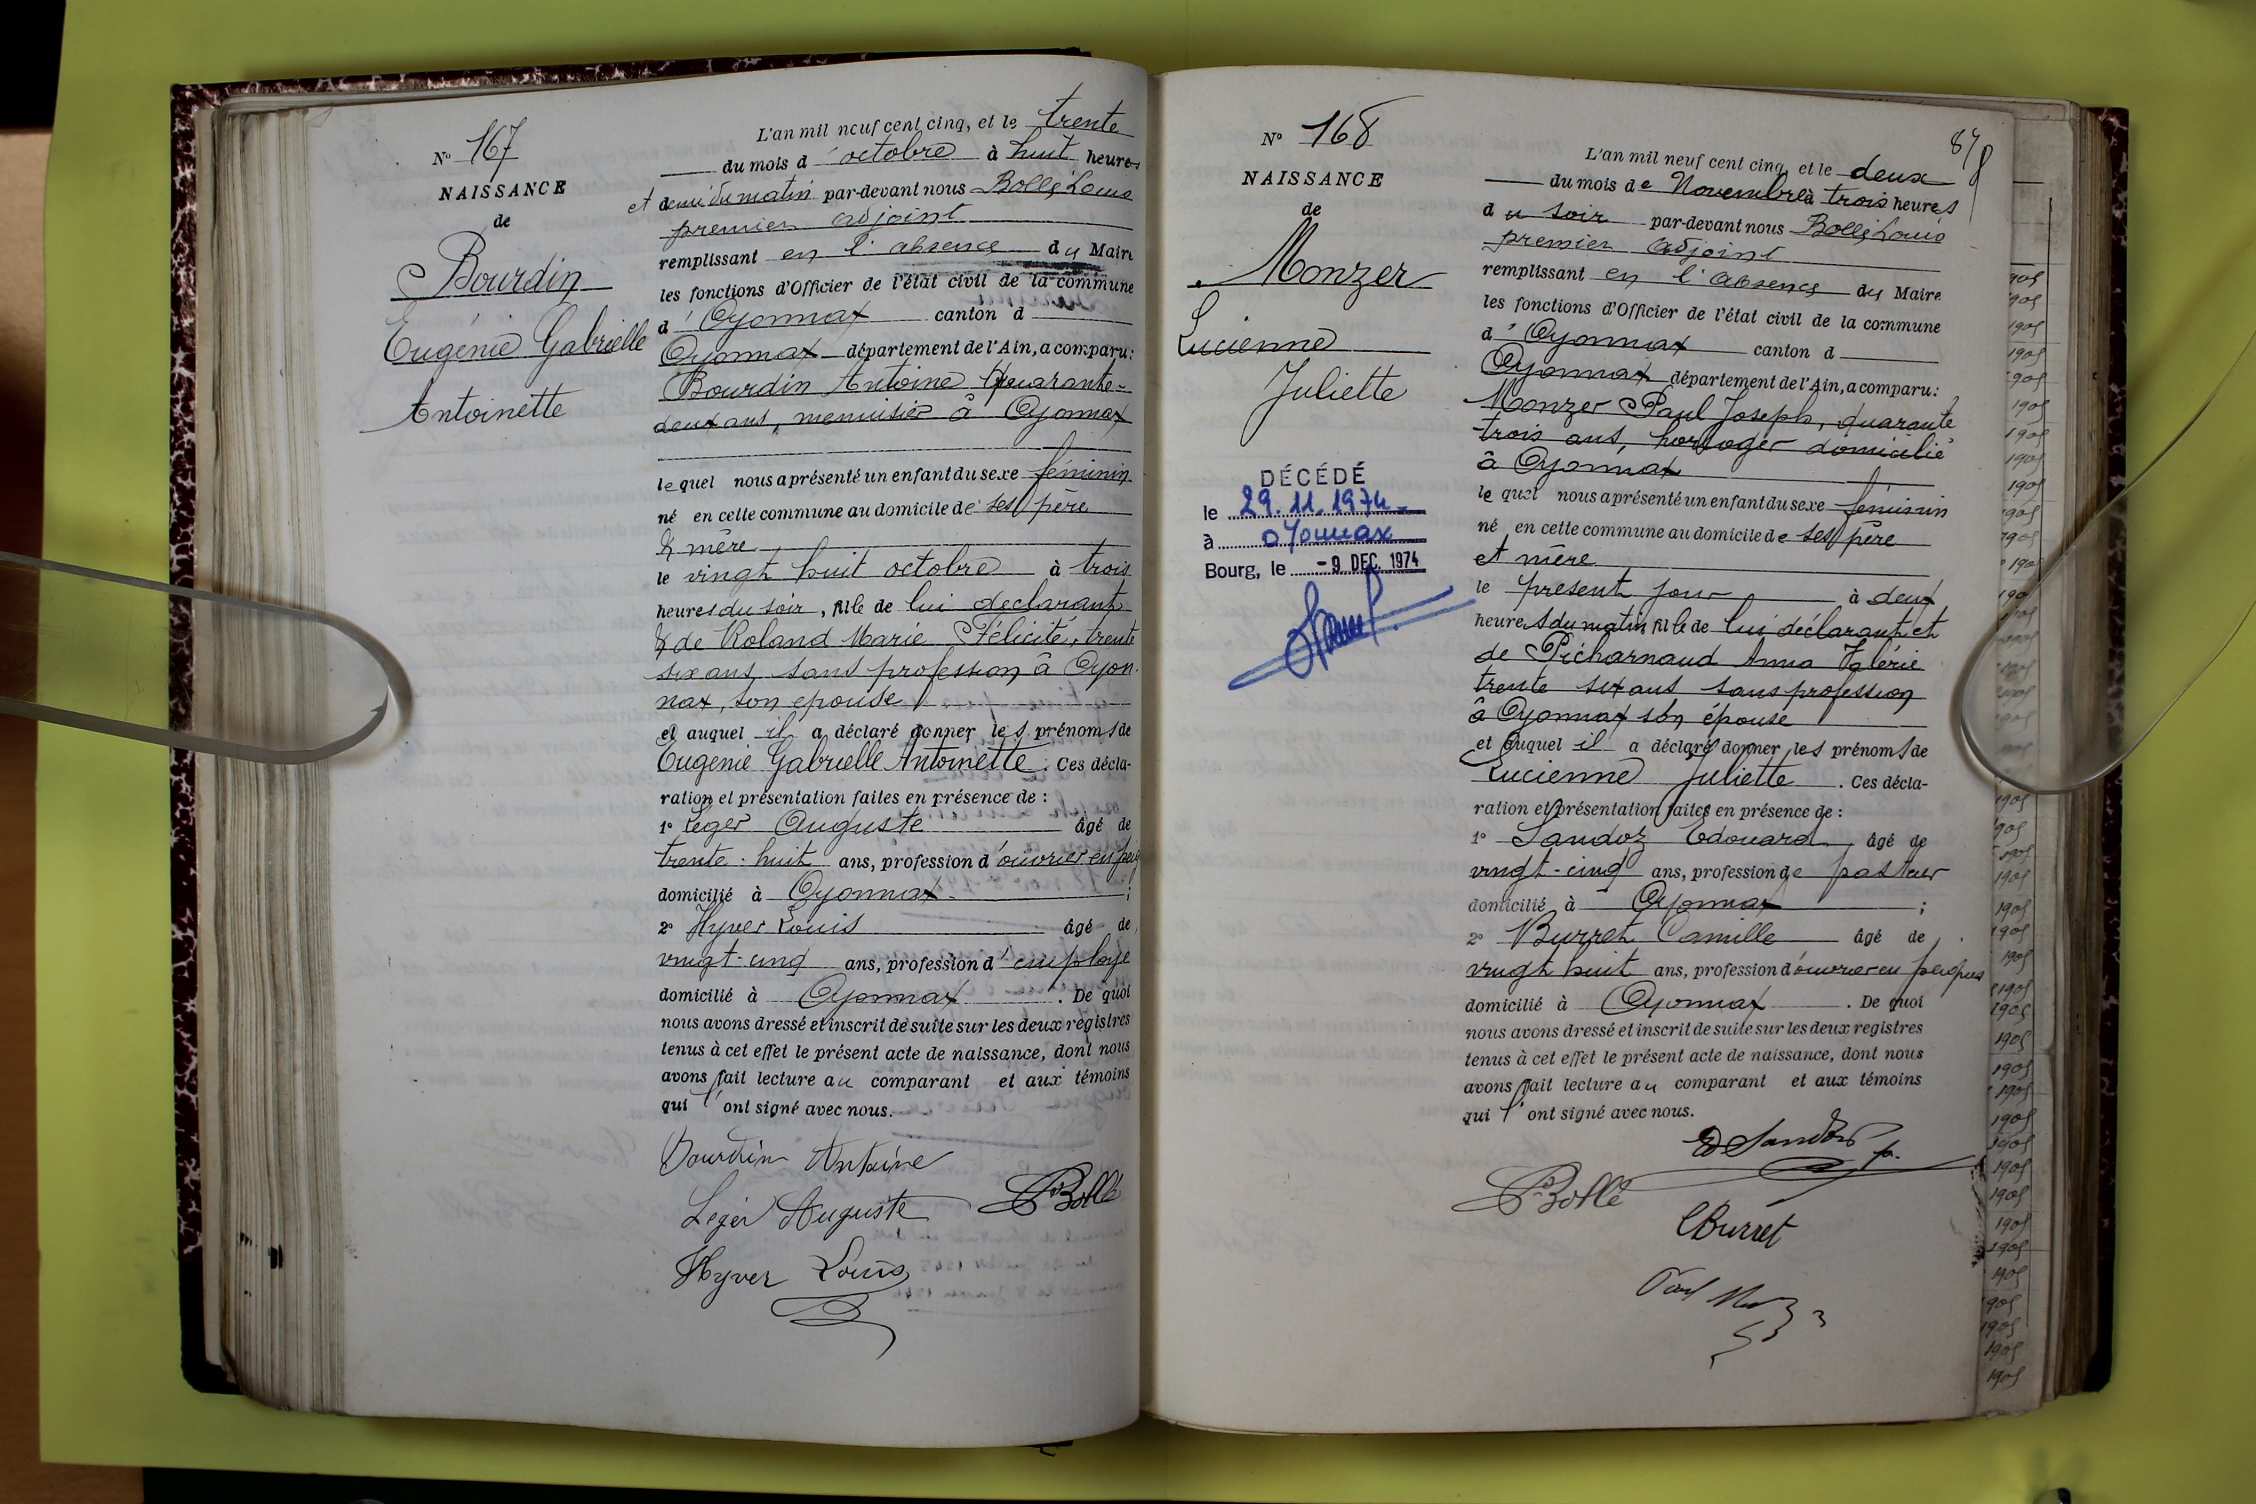 N° 167
NAISSANCE
de
Bourdin
Eugénie Gabrielle
Antoinette
L'an mil neuf cent cinq, et le trente
du mois d'octobre à huit heures
et demi du matin par-devant nous Bollé Louis
premier adjoint
remplissant en l'absence du Maire
les fonctions d'Officier de l'état civil de la commune
d'Oyonnax canton d
Oyonnax département de l'Ain, a comparu:
Bourdin Antoine quarante-
deux ans, menuisier à Oyonnax
le quel nous a présenté un enfant du sexe féminin
né en cette commune au domicile de ses père
& mère
le vingt huit octobre à trois
heures du soir, fille de lui déclarant
& de Roland Marie Félicité, trente
six ans, sans profession à Oyon-
nax, son épouse
et auquel il a déclaré donner les prénoms de
Eugénie Gabrielle Antoinette. Ces décla-
ration et présentation faites en présence de :
1° Léger Auguste âgé de
trente-huit ans, profession d'ouvrier en
domicilié à Oyonnax ;
2° Hyver Louis âgé de
vingt-cinq ans, profession d'employé
domicilié à Oyonnax. De quoi
nous avons dressé et inscrit de suite sur les deux registres
tenus à cet effet le présent acte de naissance, dont nous
avons fait lecture au comparant et aux témoins
qui l'ont signé avec nous.
Bourdin Antoine
Leger Auguste Bollé
Hyver Louis
87
N° 168
NAISSANCE
de
Monzer
Lucienne
Juliette
DÉCÉDÉ
le 29.11.1974
à oyonnax
Bourg, le -9 DEC. 1974
L'an mil neuf cent cinq, et le deux
du mois de Novembre à trois heures
du soir par-devant nous Bollé Louis
premier adjoint
remplissant en l'absence du Maire
les fonctions d'Officier de l'état civil de la commune
d'Oyonnax canton d
Oyonnax département de l'Ain, a comparu:
Monzer Paul Joseph, quarante
trois ans, horloger domicilié
à Oyonnax
le quel nous a présenté un enfant du sexe féminin
né en cette commune au domicile de ses père
et mère
le présent jour à deux
heures du matin fille de lui déclarant et
de Picharnaud Anna Valérie
trente six ans sans profession
à Oyonnax son épouse
et auquel il a déclaré donner les prénoms de
Lucienne Juliette. Ces décla-
ration et présentation faites en présence de :
1° Sandoz Edouard âgé de
vingt-cinq ans, profession de pasteur
domicilié à Oyonnax ;
2° Burret Camille âgé de
vingt huit ans, profession d'ouvrier en peignes
domicilié à Oyonnax. De quoi
nous avons dressé et inscrit de suite sur les deux registres
tenus à cet effet le présent acte de naissance, dont nous
avons fait lecture au comparant et aux témoins
qui l'ont signé avec nous.
Ed Sandoz p.
Bollé
CBurret
Paul